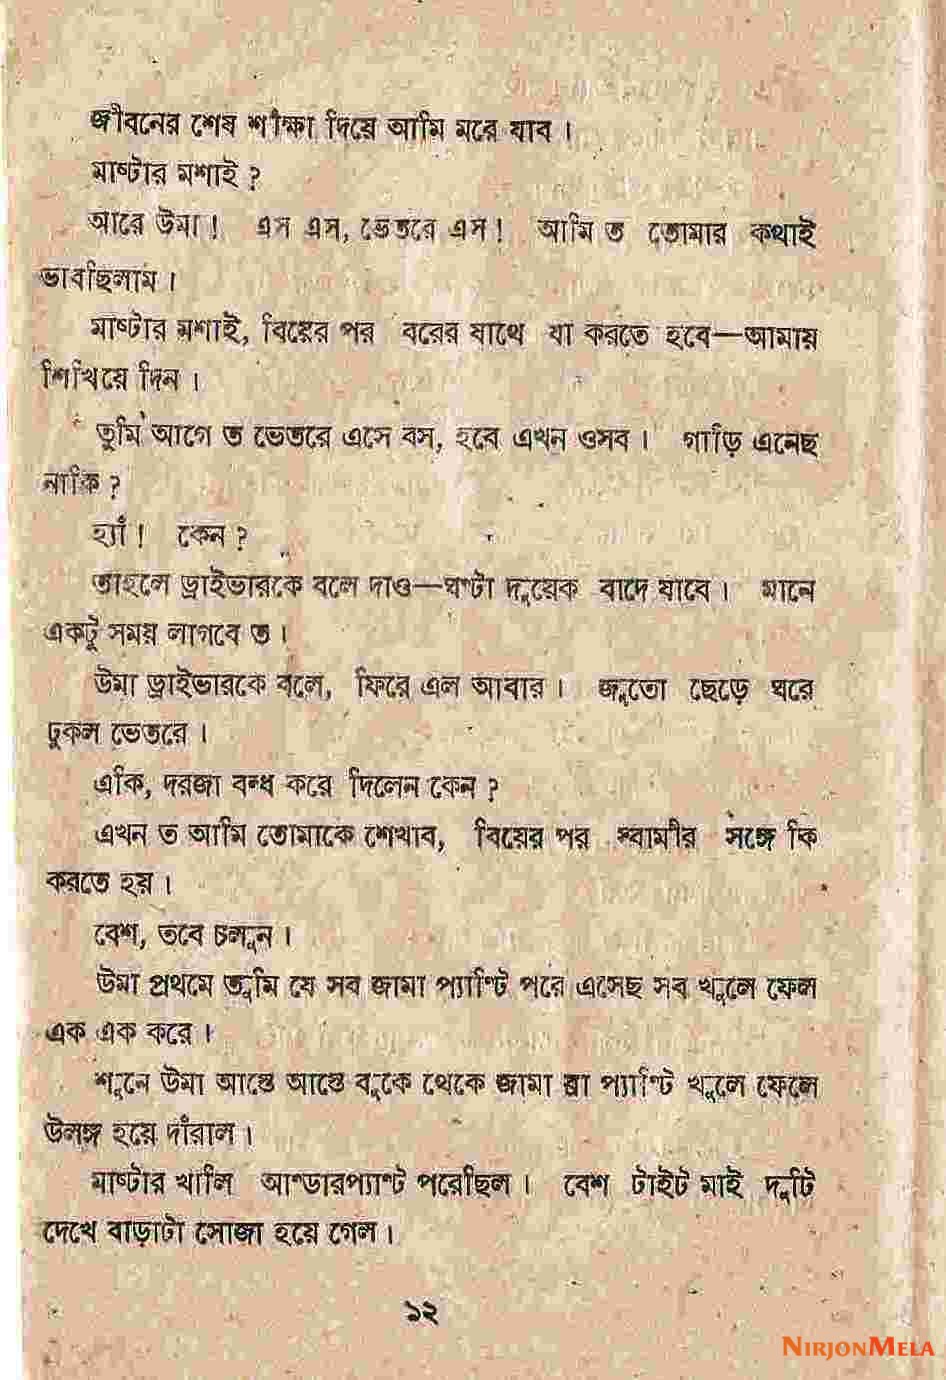 জীবনের শেষ শীক্ষা দিয়ে আমি মরে যাব ।
মাষ্টার মশাই ?
আরে উমা ! এস এস, ভেতরে এস ! আমি ত তোমার কথাই
ভাবছিলাম ।
মাষ্টার মশাই, বিয়ের পর বরের যাথে যা করতে হবে—আমায়
শিখিয়ে দিন ।
তুমি আগে ত ভেতরে এসে বস, হবে এখন ওসব । গাড়ি এনেছ
নাকি ?
হ্যাঁ ! কেন ?
তাহলে ড্রাইভারকে বলে দাও—ঘণ্টা দুয়েক বাদে যাবে । মানে
একটু সময় লাগবে ত ।
উমা ড্রাইভারকে বলে, ফিরে এল আবার । জুতো ছেড়ে ঘরে
ঢুকল ভেতরে ।
একি, দরজা বন্ধ করে দিলেন কেন ?
এখন ত আমি তোমাকে শেখাব, বিয়ের পর স্বামীর সঙ্গে কি
করতে হয় ।
বেশ, তবে চলুন ।
উমা প্রথমে তুমি যে সব জামা প্যাণ্টি পরে এসেছ সব খুলে ফেল
এক এক করে ।
শুনে উমা আস্তে আস্তে বুকে থেকে জামা ব্রা প্যাণ্টি খুলে ফেলে
উলঙ্গ হয়ে দাঁরাল ।
মাষ্টার খালি আণ্ডারপ্যাণ্ট পরেছিল । বেশ টাইট মাই দুটি
দেখে বাড়াটা সোজা হয়ে গেল ।
১২
NIRJONMELA